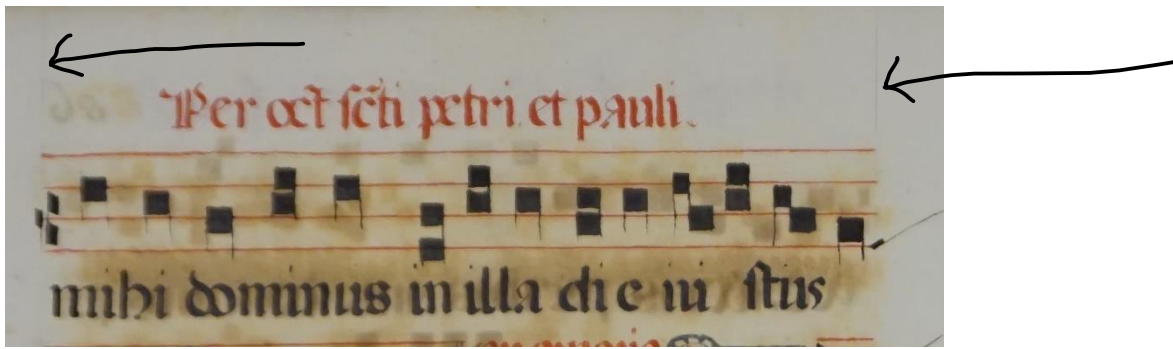 Per oct̄ sc̄ti petri et pauli.
mihi dominus in illa die iu stus